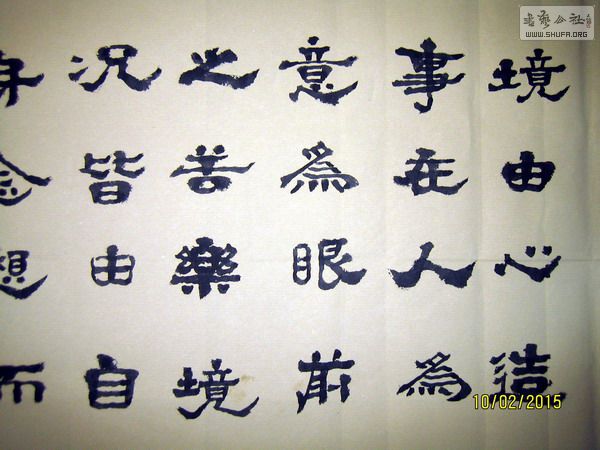 境由心造
事在人為
意為眼前
之苦樂境
况皆由自
身念想而
書藝公社
WWW.SHUFA.ORG
10/02/2015